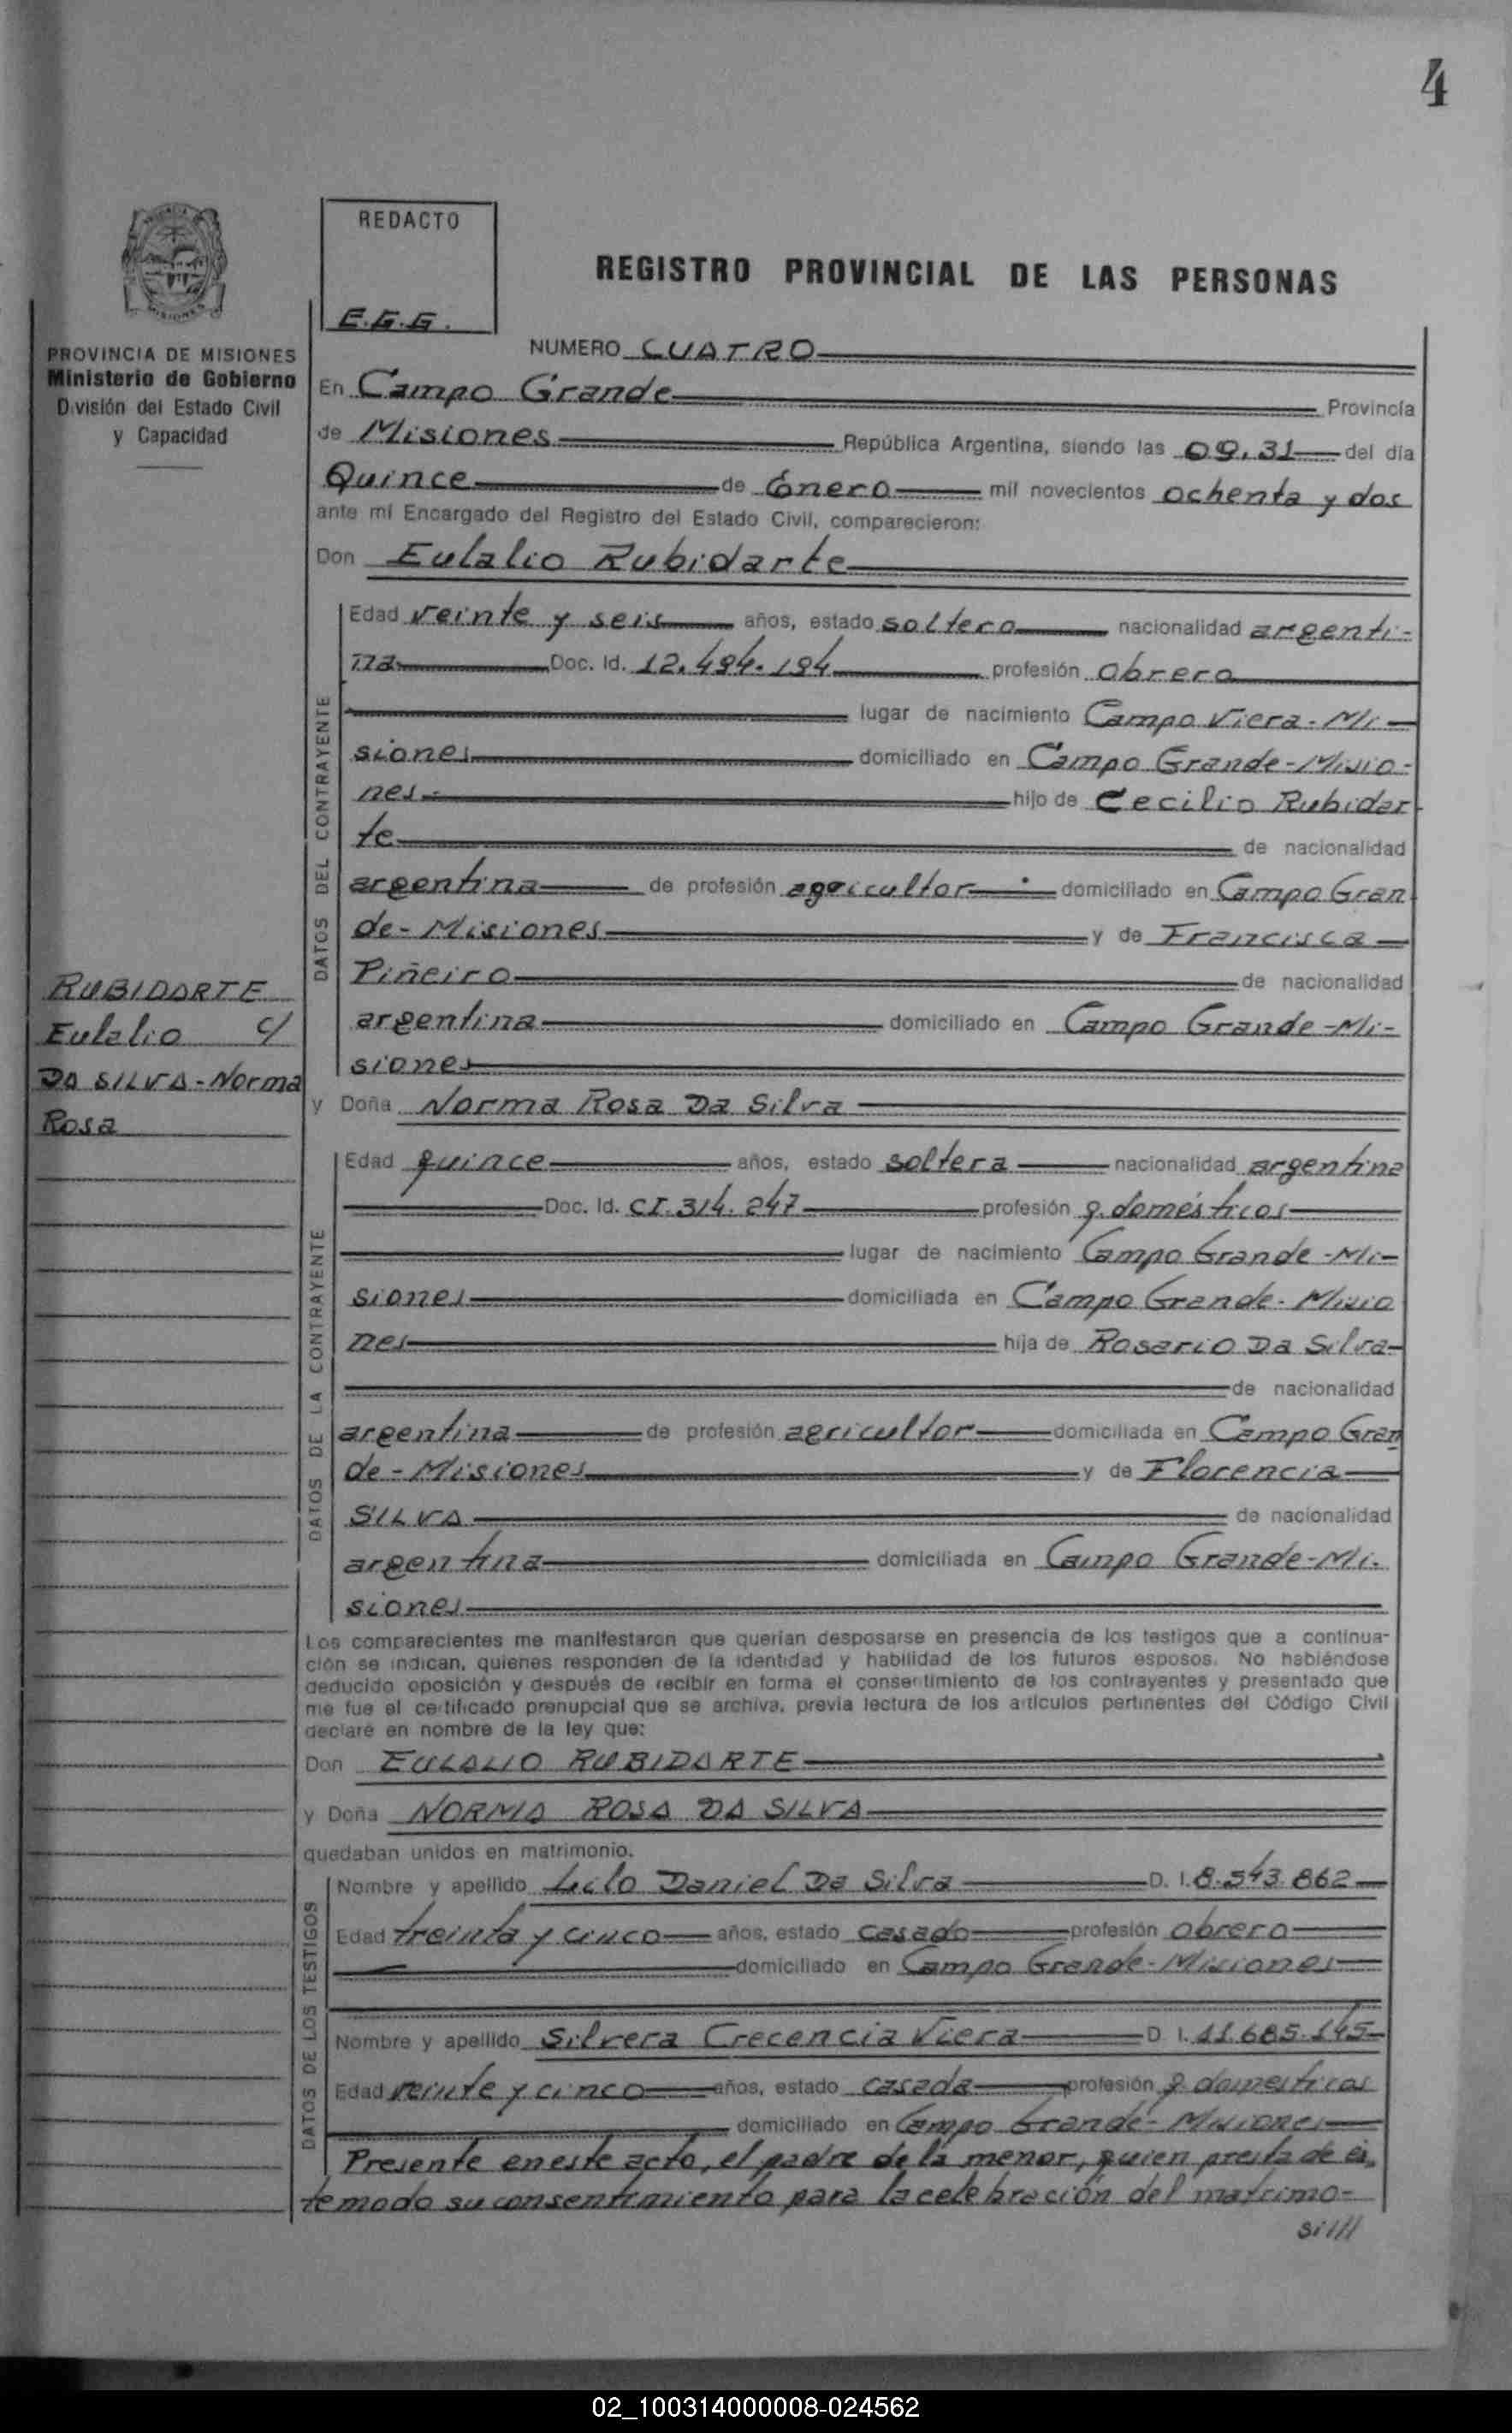 4
REDACTO
E.G.G.
REGISTRO PROVINCIAL DE LAS PERSONAS
PROVINCIA DE MISIONES
Ministerio de Gobierno
División del Estado Civil
y Capacidad
NUMERO CUATRO
En Campo Grande Provincia
de Misiones República Argentina, siendo las 09,31 del día
Quince de Enero mil novecientos ochenta y dos
ante mí Encargado del Registro del Estado Civil, comparecieron:
Don Eulalio Rubidarte
DATOS DEL CONTRAYENTE
Edad veinte y seis años, estado soltero nacionalidad argenti-
na Doc. Id. 12.494.194 profesión obrero
lugar de nacimiento Campo Viera-Mi-
siones domiciliado en Campo Grande-Misio-
nes- hijo de Cecilio Rubidar
te de nacionalidad
argentina de profesión agricultor domiciliado en Campo Gran
de-Misiones y de Francisca
Piñeiro de nacionalidad
argentina domiciliado en Campo Grande-Mi-
siones
RUBIDARTE
Eulalio c/
DA SILVA-Norma
Rosa
y Doña Norma Rosa Da Silva
DATOS DE LA CONTRAYENTE
Edad quince años, estado soltera nacionalidad argentina
Doc. Id. CI.314.247 profesión q.domésticos
lugar de nacimiento Campo Grande-Mi-
siones domiciliada en Campo Grande-Misio
nes hija de Rosario Da Silva-
de nacionalidad
argentina de profesión agricultor domiciliada en Campo Gran
de-Misiones y de Florencia
SILVA de nacionalidad
argentina domiciliada en Campo Grande-Mi-
siones
Los comparecientes me manifestaron que querían desposarse en presencia de los testigos que a continua-
ción se indican, quienes responden de la identidad y habilidad de los futuros esposos. No habiéndose
deducido oposición y después de recibir en forma el consentimiento de los contrayentes y presentado que
me fue el certificado prenupcial que se archiva, previa lectura de los artículos pertinentes del Código Civil
declaré en nombre de la ley que:
Don EULALIO RUBIDARTE
y Doña NORMA ROSA DA SILVA
quedaban unidos en matrimonio.
DATOS DE LOS TESTIGOS
Nombre y apellido Daniel Da Silva D. I. 8.543.862
Edad treinta y cinco años, estado casado profesión obrero
domiciliado en Campo Grande-Misiones
Nombre y apellido Silvera Crecencia Viera D. I. 11.685.145
Edad veinte y cinco años, estado casada profesión q domesticos
domiciliado en Campo Grande-Misiones
Presente en este acto, el padre de la menor, quien presta de es-
te modo su consentimiento para la celebración del matrimo-
si///
02_100314000008-024562